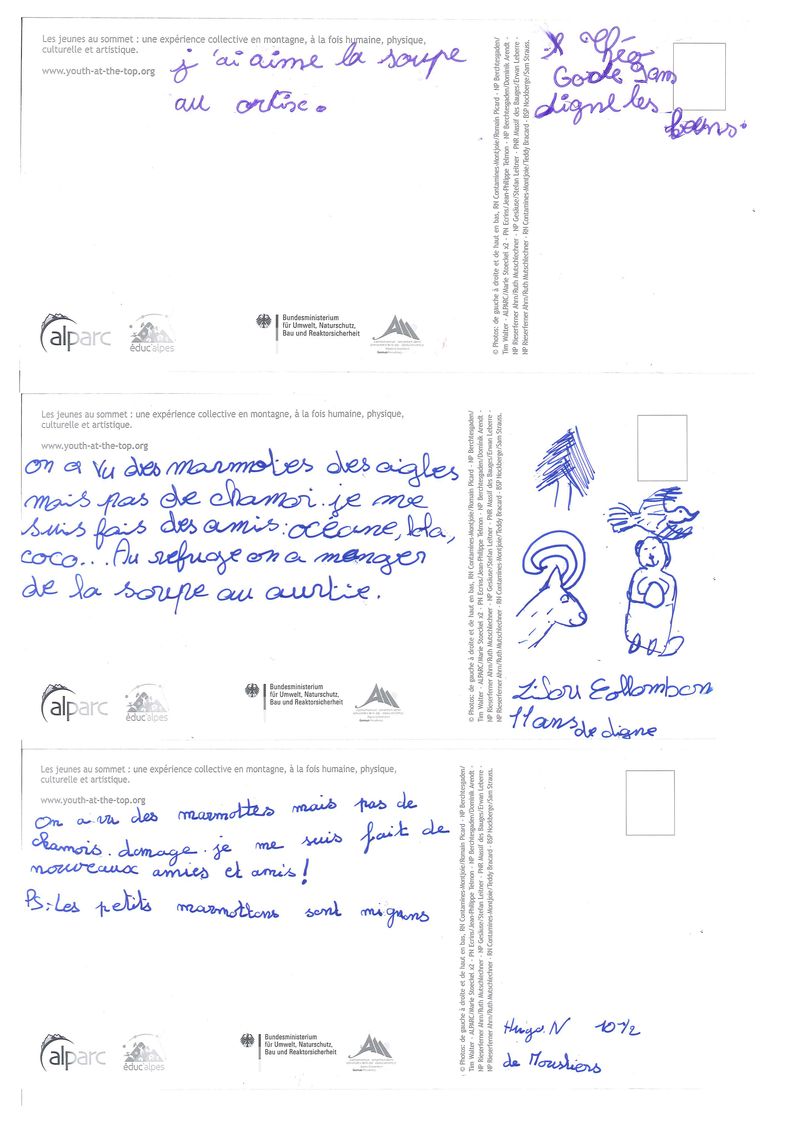 Les jeunes au sommet : une expérience collective en montagne, à la fois humaine, physique,
culturelle et artistique.
www.youth-at-the-top.org
j'ai aime la soupe
au ortise.
Théo
9 ans
digne les
bains.
© Photos: de gauche à droite et de haut en bas, RN Contamines-Montjoie/Romain Picard - NP Berchtesgaden/
Tim Walter - ALPARC/Marie Stoeckel x2 - PN Ecrins/Jean-Philippe Telmon - NP Berchtesgaden/Dominik Arendt -
NP Rieserferner Ahrn/Ruth Mutschlechner - NP Gesäuse/Stefan Leitner - PNR Massif des Bauges/Erwan Leberre -
NP Rieserferner Ahrn/Ruth Mutschlechner - RN Contamines-Montjoie/Teddy Bracard - BSP Hockberge/Sam Strauss.
alparc
éduc'alpes
Bundesministerium
für Umwelt, Naturschutz,
Bau und Reaktorsicherheit
Les jeunes au sommet : une expérience collective en montagne, à la fois humaine, physique,
culturelle et artistique.
www.youth-at-the-top.org
on a vu des marmotes des aigles
mais pas de chamoi. je me
suis fais des amis: océane, lola,
coco... Au refuge on a manger
de la soupe au aurtie.
© Photos: de gauche à droite et de haut en bas, RN Contamines-Montjoie/Romain Picard - NP Berchtesgaden/
Tim Walter - ALPARC/Marie Stoeckel x2 - PN Ecrins/Jean-Philippe Telmon - NP Berchtesgaden/Dominik Arendt -
NP Rieserferner Ahrn/Ruth Mutschlechner - NP Gesäuse/Stefan Leitner - PNR Massif des Bauges/Erwan Leberre -
NP Rieserferner Ahrn/Ruth Mutschlechner - RN Contamines-Montjoie/Teddy Bracard - BSP Hockberge/Sam Strauss.
Lilou Collombon
11 ans
de digne
alparc
éduc'alpes
Bundesministerium
für Umwelt, Naturschutz,
Bau und Reaktorsicherheit
Les jeunes au sommet : une expérience collective en montagne, à la fois humaine, physique,
culturelle et artistique.
www.youth-at-the-top.org
On a vu des marmottes mais pas de
chamois. domage. je me suis fait de
nouveaux amies et amis!
PS: Les petits marmottons sont mignons
© Photos: de gauche à droite et de haut en bas, RN Contamines-Montjoie/Romain Picard - NP Berchtesgaden/
Tim Walter - ALPARC/Marie Stoeckel x2 - PN Ecrins/Jean-Philippe Telmon - NP Berchtesgaden/Dominik Arendt -
NP Rieserferner Ahrn/Ruth Mutschlechner - NP Gesäuse/Stefan Leitner - PNR Massif des Bauges/Erwan Leberre -
NP Rieserferner Ahrn/Ruth Mutschlechner - RN Contamines-Montjoie/Teddy Bracard - BSP Hockberge/Sam Strauss.
Hugo. N 10 1/2
de Moustiers
alparc
éduc'alpes
Bundesministerium
für Umwelt, Naturschutz,
Bau und Reaktorsicherheit